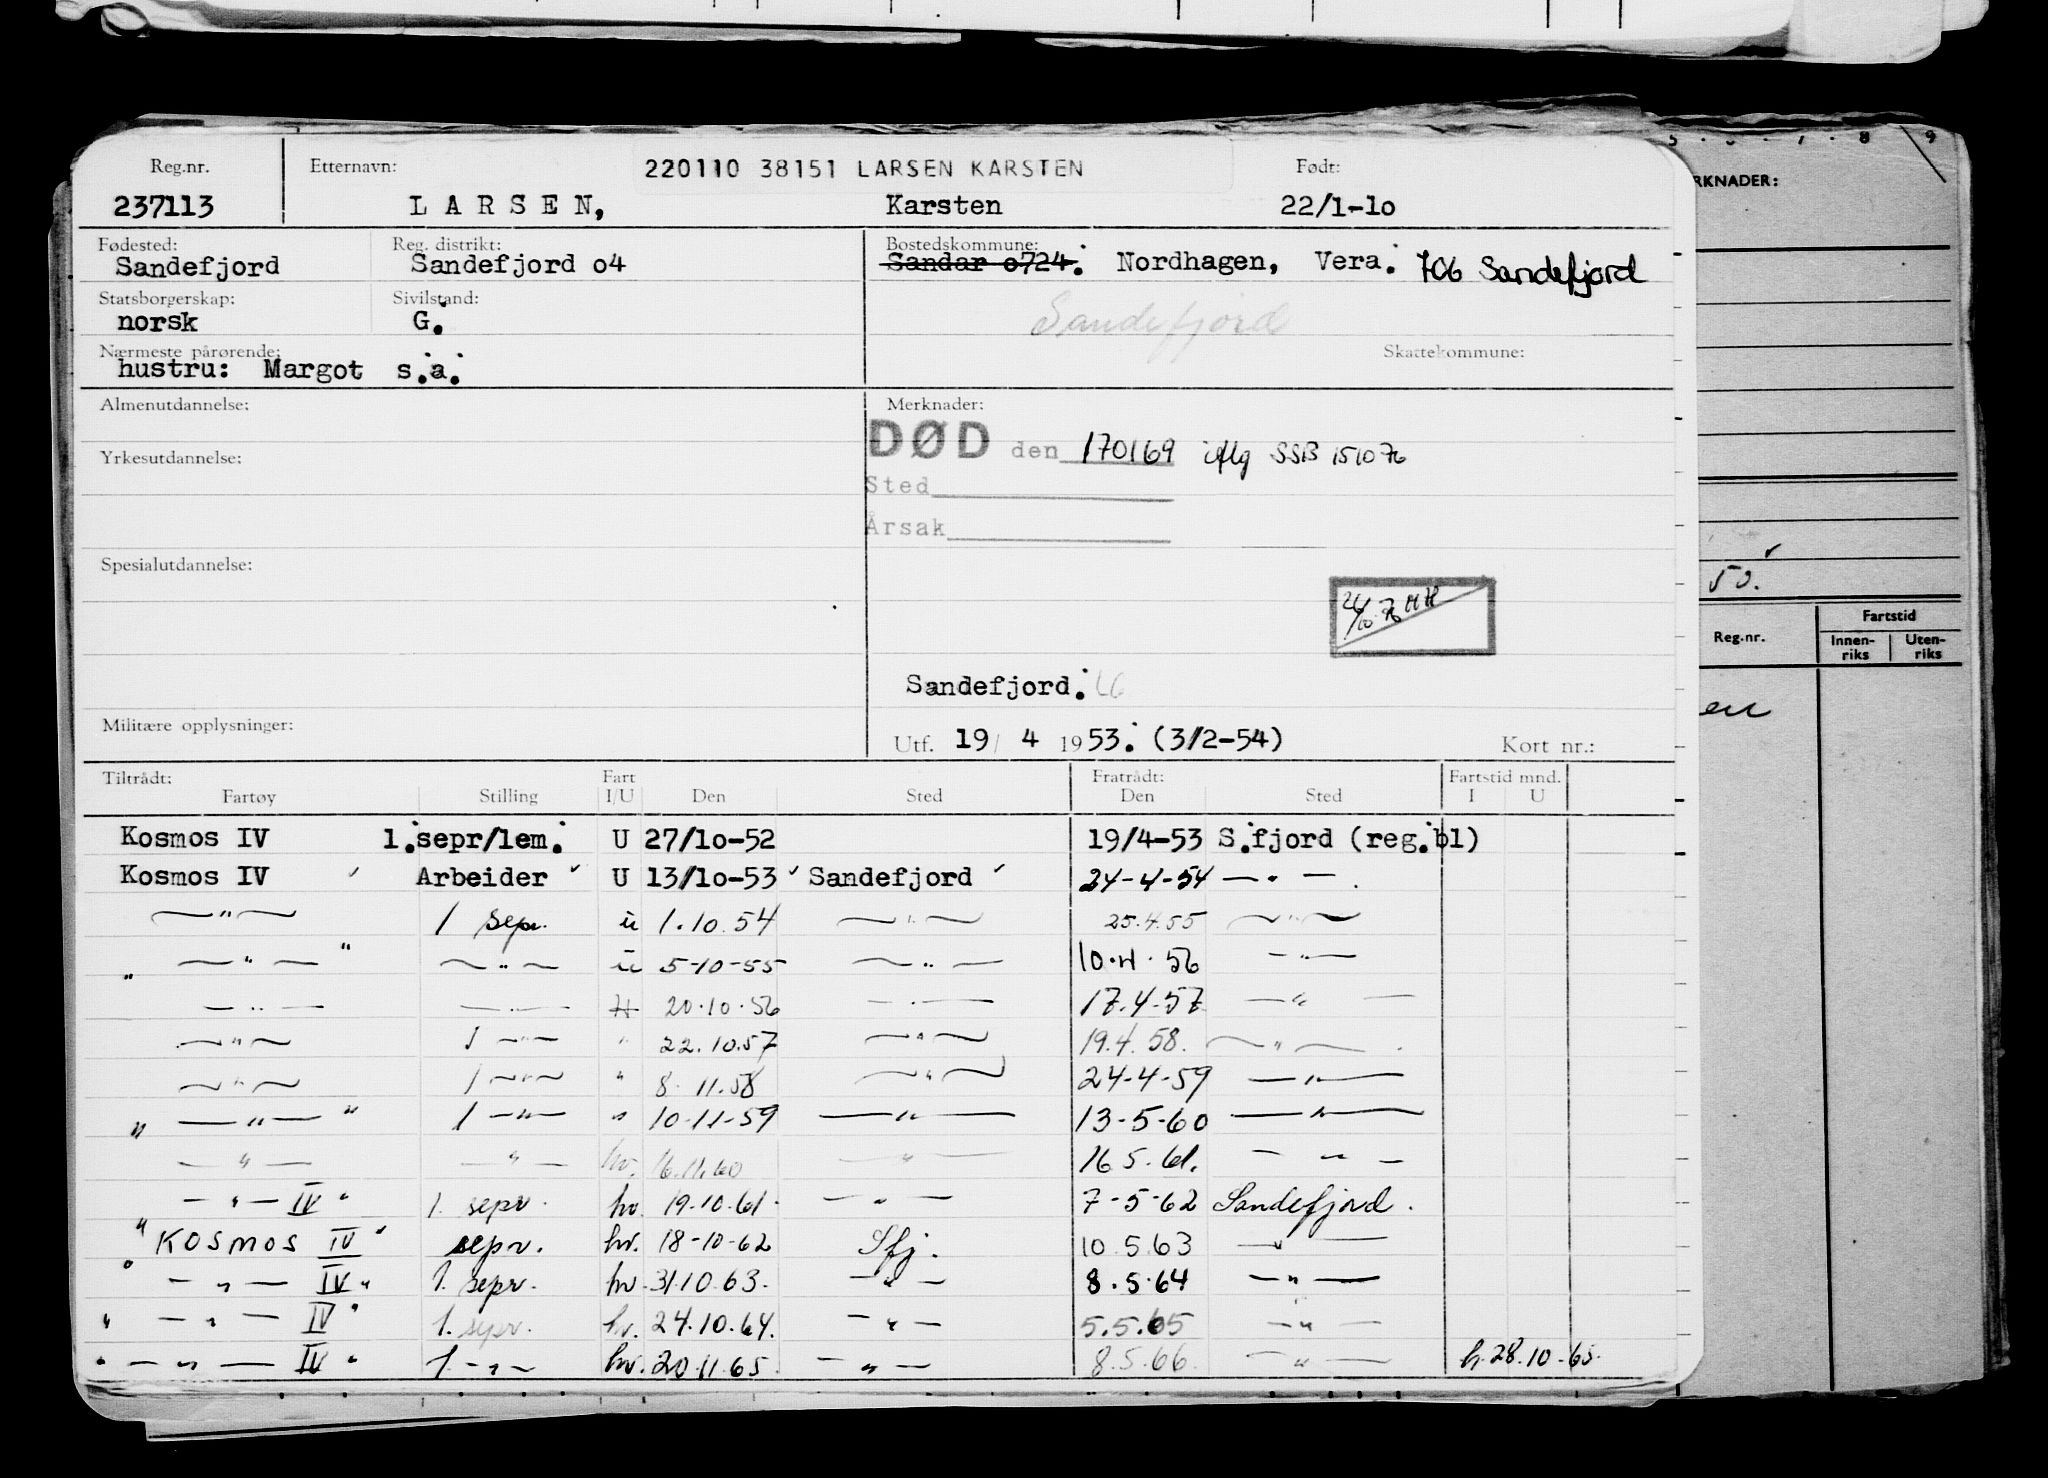 Reg.nr. Etternavn: 220110 38151 LARSEN KARSTEN Født:
237113 LARSEN, Karsten 22/1-1o
Fødested: Reg. distrikt: Bostedskommune:
Sandefjord Sandefjord o4 Sandar o724. Nordhagen, Vera. 706 Sandefjord
Statsborgerskap: Sivilstand:
norsk G. Sandefjord
Nærmeste pårørende: Skattekommune:
hustru: Margot s.a.
Almenutdannelse: Merknader:
DØD den 170169 iflg SSB 151076
Yrkesutdannelse:
Sted
Årsak
Spesialutdannelse:
26/10.76 HH
Sandefjord.
Militære opplysninger:
Utf. 19/ 4 1953. (3/2-54) Kort nr.:
Tiltrådt: Fart Fratrådt: Fartstid mnd.
Fartøy Stilling I/U Den Sted Den Sted I U
Kosmos IV 1.sepr/lem. U 27/1o-52 19/4-53 S.fjord (reg.bl)
Kosmos IV Arbeider U 13/1o-53 Sandefjord 24-4-54 — " —
— " — 1 sepr. u 1.10.54 — " — 25.4.55 — " —
" — " — " — " — u 5-10-55 — " — 10.4.56 — " —
— " — — " — 20.10.56 — " — 17.4.57 — " —
— " — 1 — " — " 22.10.57 — " — 19.4.58. — " —
— " — 1 — " — " 8.11.58 — " — 24-4-59 — " —
" — " — " 1 — " — " 10-11-59 — " — 13-5-60 — " —
— " — — " — hv. 16.11.60 — " — 16.5.61. — " —
— " — IV " 1. sepr. hv 19.10.61. — " — 7-5-62 Sandefjord.
" KOSMOS IV " sepr. hv. 18-10-62 Sfj. 10.5.63 — " —
— " — IV " 1. sepr. hv. 31.10.63. — " — 8.5.64 — " —
" — " — IV " 1. sepr. hv. 24.10.64. — " — 5.5.65 — " —
" — " — IV " 1. — " — hv. 20.11.65. — " — 8.5.66. — " — h. 28.10.65.
5 7 8 9
RKNADER:
50.
Reg.nr. Fartstid
Innen-riks Uten-riks
en